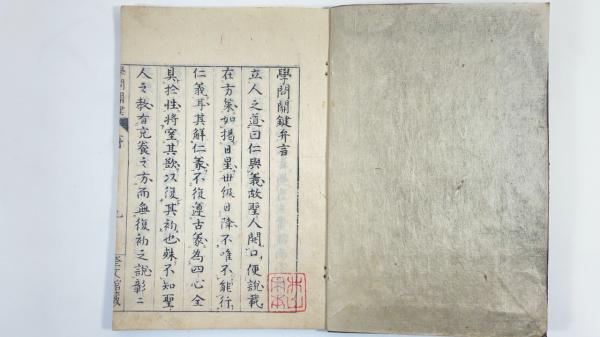 學問關鍵弁言
立人之道曰仁與義故聖人開口便說載
在方策如揭日星世級日降不唯不能行
仁義耳其解仁義不復遵古義為四心全
具於性將窒其欲以復其初也殊不知聖
人之教有充養之方而無復初之說彰〻
學問關鍵